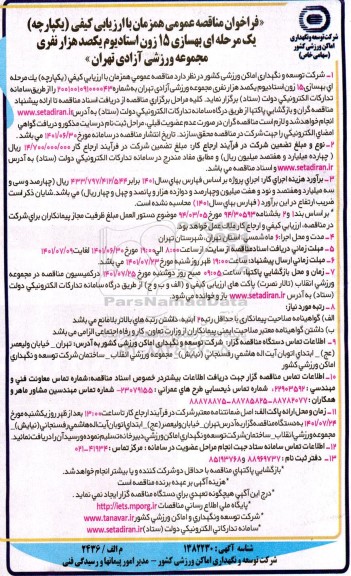 شرکت توسعه و نگهداری
اماکن ورزشی کشور
(سهامی خاص)
«فراخوان مناقصه عمومی همزمان با ارزیابی کیفی (یکپارچه)
یک مرحله ای بهسازی ۱۵ زون استادیوم یکصد هزار نفری
مجموعه ورزشی آزادی تهران»
۱- شرکت توسعه و نگهداری اماکن ورزشی کشور در نظر دارد مناقصه عمومی همزمان با ارزیابی کیفی (یکپارچه) یک مرحله
ای بهسازی ۱۵ زون استادیوم یکصد هزار نفری مجموعه ورزشی آزادی تهران به شماره
تدارکات الکترونیکی دولت (ستاد) برگزار نماید. کلیه مراحل برگزاری مناقصه از دریافت اسناد مناقصه تا ارائه پیشنهاد
مناقصه گران و بازگشایی پاکتها از طریق درگاه سامانه تدارکات الکترونیکی دولت (ستاد) به آدرس www.setadiran.ir
انجام خواهد شد و لازم است مناقصه گران در صورت عدم عضویت قبلی، مراحل ثبت نام در سایت مذکور و دریافت گواهی
امضای الکترونیکی را جهت شرکت در مناقصه محقق سازند. تاریخ انتشار مناقصه در سامانه مورخ ۱۴۰۱/۰۶/۳۰ می باشد.
۲- نوع و مبلغ تضمین شرکت در فرآیند ارجاع کار: مبلغ تضمین شرکت در فرآیند ارجاع کار ۱۴/۷۰۰/۰۰۰/۰۰۰ ریال
(چهارده میلیارد و هفتصد میلیون ریال) و مطابق مفاد مندرج در سامانه تدارکات الکترونیکی دولت (ستاد) به آدرس
www.setadiran.ir و اسناد مناقصه می باشد.
۳- برآورد هزینه اجرای کار: اجرای پروژه بر اساس فهارس بهای سال ۱۴۰۱ برابر ۴۳۳/۷۹۷/۴۱۲/۵۴۴ ریال (چهارصد و سی و
سه میلیارد و هفتصد و نود و هفت میلیون و چهارصد و دوازده هزار و پانصد و چهل و چهار ریال) می باشد. شایان ذکر است
ضریب ارتفاع در این برآورد (فهارس بهای سال ۱۴۰۱) محاسبه نشده است.
* بر اساس بند ۱ و ۲ بخشنامه ۹۴/۲۰۵۹۳ مورخ ۹۴/۰۳/۰۵ موضوع دستور العمل مبلغ ظرفیت مجاز پیمانکاران برای شرکت
در مناقصه، ارزیابی کیفی و ارجاع کار ملاک عمل خواهد بود.
۴- مدت و محل اجرا: ۶ ماه شمسی. استان تهران. شهرستان تهران
۵- مهلت زمانی دریافت اسناد مناقصه از سایت: از ساعت ۸:۰۰ الی ۱۹:۰۰ مورخ ۱۴۰۱/۰۶/۳۰ لغایت ۱۴۰۱/۰۷/۰۹
۶- مهلت زمانی ارسال پیشنهاد: ساعت ۱۹:۰۰ ظهر روز شنبه مورخ ۱۴۰۱/۰۷/۲۳ می باشد.
۷- زمان و محل بازگشایی پاکتها: ساعت ۰۹:۰۵ صبح روز دوشنبه مورخ ۱۴۰۱/۰۷/۲۵ در کمیسیون مناقصه در مجموعه
ورزشی انقلاب (تالار نصرت) پاکت های ارزیابی کیفی و (الف و ب و ج) از طریق درگاه سامانه تدارکات الکترونیکی دولت
(ستاد) به آدرس www.setadiran.ir باز و خوانده می شود.
۸- رتبه مورد نیاز:
الف) گواهینامه صلاحیت پیمانکاری با حداقل رتبه ۲ ابنیه، داشتن رتبه های بالاتر بلامانع می باشد
ب) داشتن گواهینامه معتبر صلاحیت ایمنی پیمانکاران از وزارت تعاون، کار و رفاه اجتماعی الزامی می باشد
۹- اطلاعات تماس دستگاه مناقصه گزار: شرکت توسعه و نگهداری اماکن ورزشی کشور به آدرس: تهران _ خیابان ولیعصر
(عج) _ ابتدای اتوبان آیت اله هاشمی رفسنجانی (نیایش) _ مجموعه ورزشی انقلاب _ ساختمان شرکت توسعه و نگهداری
اماکن ورزشی کشور
۱۰- اطلاعات تماس مناقصه گزار جهت دریافت اطلاعات بیشتر در خصوص اسناد مناقصه: شماره تماس معاونت فنی و
مهندسی: ۲۲۹۰۳۵۹۲ شماره تماس ذیحسابی طرح های عمرانی: ۲۳۰۷۹۱۵۵ شماره تماس مهندسین مشاور ماهر و
همکاران: ۸۸۷۸۶۰۷۷-۸۸۷۸۵۸۲۵-۸۸۸۷۸۸۷۵
۱۱- زمان و محل ارائه پاکت الف: اصل ضمانتنامه معتبر شرکت در فرآیند ارجاع کار تا ساعت ۱۳:۰۰ بعد از ظهر روز یکشنبه مورخ
۱۴۰۱/۰۷/۲۴ به دستگاه مناقصه گزار به آدرس تهران_ خیابان ولیعصر (عج)_ ابتدای اتوبان آیت اله هاشمی رفسنجانی (نیایش)_
مجموعه ورزشی انقلاب_ ساختمان شرکت توسعه و نگهداری اماکن ورزشی دبیرخانه تسلیم نموده و رسید آن را دریافت نمائید.
۱۲- اطلاعات تماس سامانه ستاد جهت انجام مراحل عضویت در سامانه: مرکز تماس ۴۱۹۳۴-۰۲۱
۱۳- دفتر ثبت نام: ۸۸۹۶۹۷۳۷ و ۸۵۱۹۳۷۶۸
*بازگشایی پاکتهای مناقصه با حداقل دو شرکت کننده و یا بیشتر انجام خواهد شد.
*هزینه آگهی بر عهده برنده مناقصه است
*درج این آگهی هیچگونه تعهدی برای دستگاه مناقصه گزار ایجاد نمی نماید.
*پایگاه ملی اطلاع رسانی مناقصات http://iets.mporg.ir
*شرکت توسعه و نگهداری و اماکن ورزشی کشور www.tanavar.ir
*سامانه تدارکات الکترونیکی دولت (ستاد) www.setadiran.ir
شناسه آگهی: ۱۳۸۲۲۳۰ م الف / ۲۴۳۶
شرکت توسعه و نگهداری اماکن ورزشی کشور - مدیر امور پیمانها و رسیدگی فنی